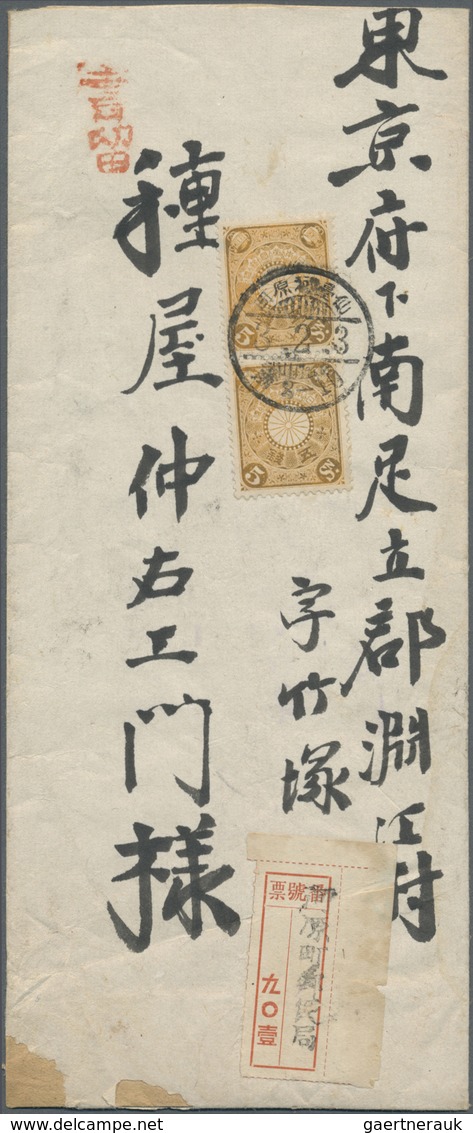 東京府下南足立郡淵江村
字竹塚
種屋仲右エ門様
書留
5
2 3
五銭
5
票號番
九〇壹
原町郵便局
gaertnerauk